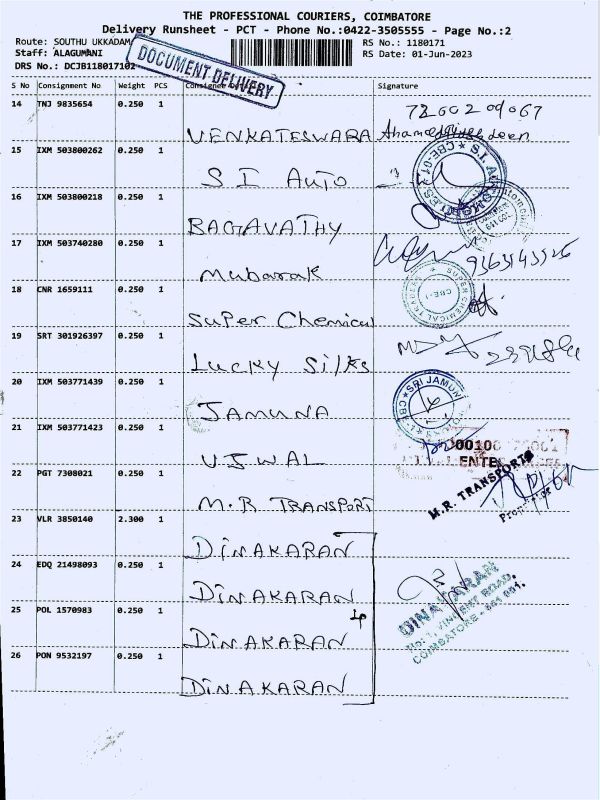 THE PROFESSIONAL COURIERS, COIMBATORE
Delivery Runsheet - PCT - Phone No.:0422-3505555 - Page No.:2
Route: SOUTHU UKKADAM
RS No.: 1180171
Staff: ALAGUMANI
RS Date: 01-Jun-2023
DRS No.: DCJB118017102
DOCUMENT DELIVERY
S No Consignment No Weight PCS Consignee Signature
14 TNJ 9835654 0.250 1
VENKATESWARA
15 IXM 503800262 0.250 1
S I AUTO
16 IXM 503800218 0.250 1
BAGAVATHY
17 IXM 503740280 0.250 1
Mubarak
9363143526
18 CNR 1659111 0.250 1
Super Chemical
19 SRT 301926397 0.250 1
Lucky Silks
20 IXM 503771439 0.250 1
JAMUNA
SRI JAMUNA
21 IXM 503771423 0.250 1
UJWAL
22 PGT 7308021 0.250 1
M.R TRANSPORT
M.R. TRANSPORTS
Proprietor
23 VLR 3850140 2.300 1
DINAKARAN
24 EDQ 21498093 0.250 1
DINAKARAN
25 POL 1570983 0.250 1
DINAKARAN
DINAKARAN
No: 1, VINCENT ROAD,
COIMBATORE - 641 001.
26 PON 9532197 0.250 1
DINAKARAN